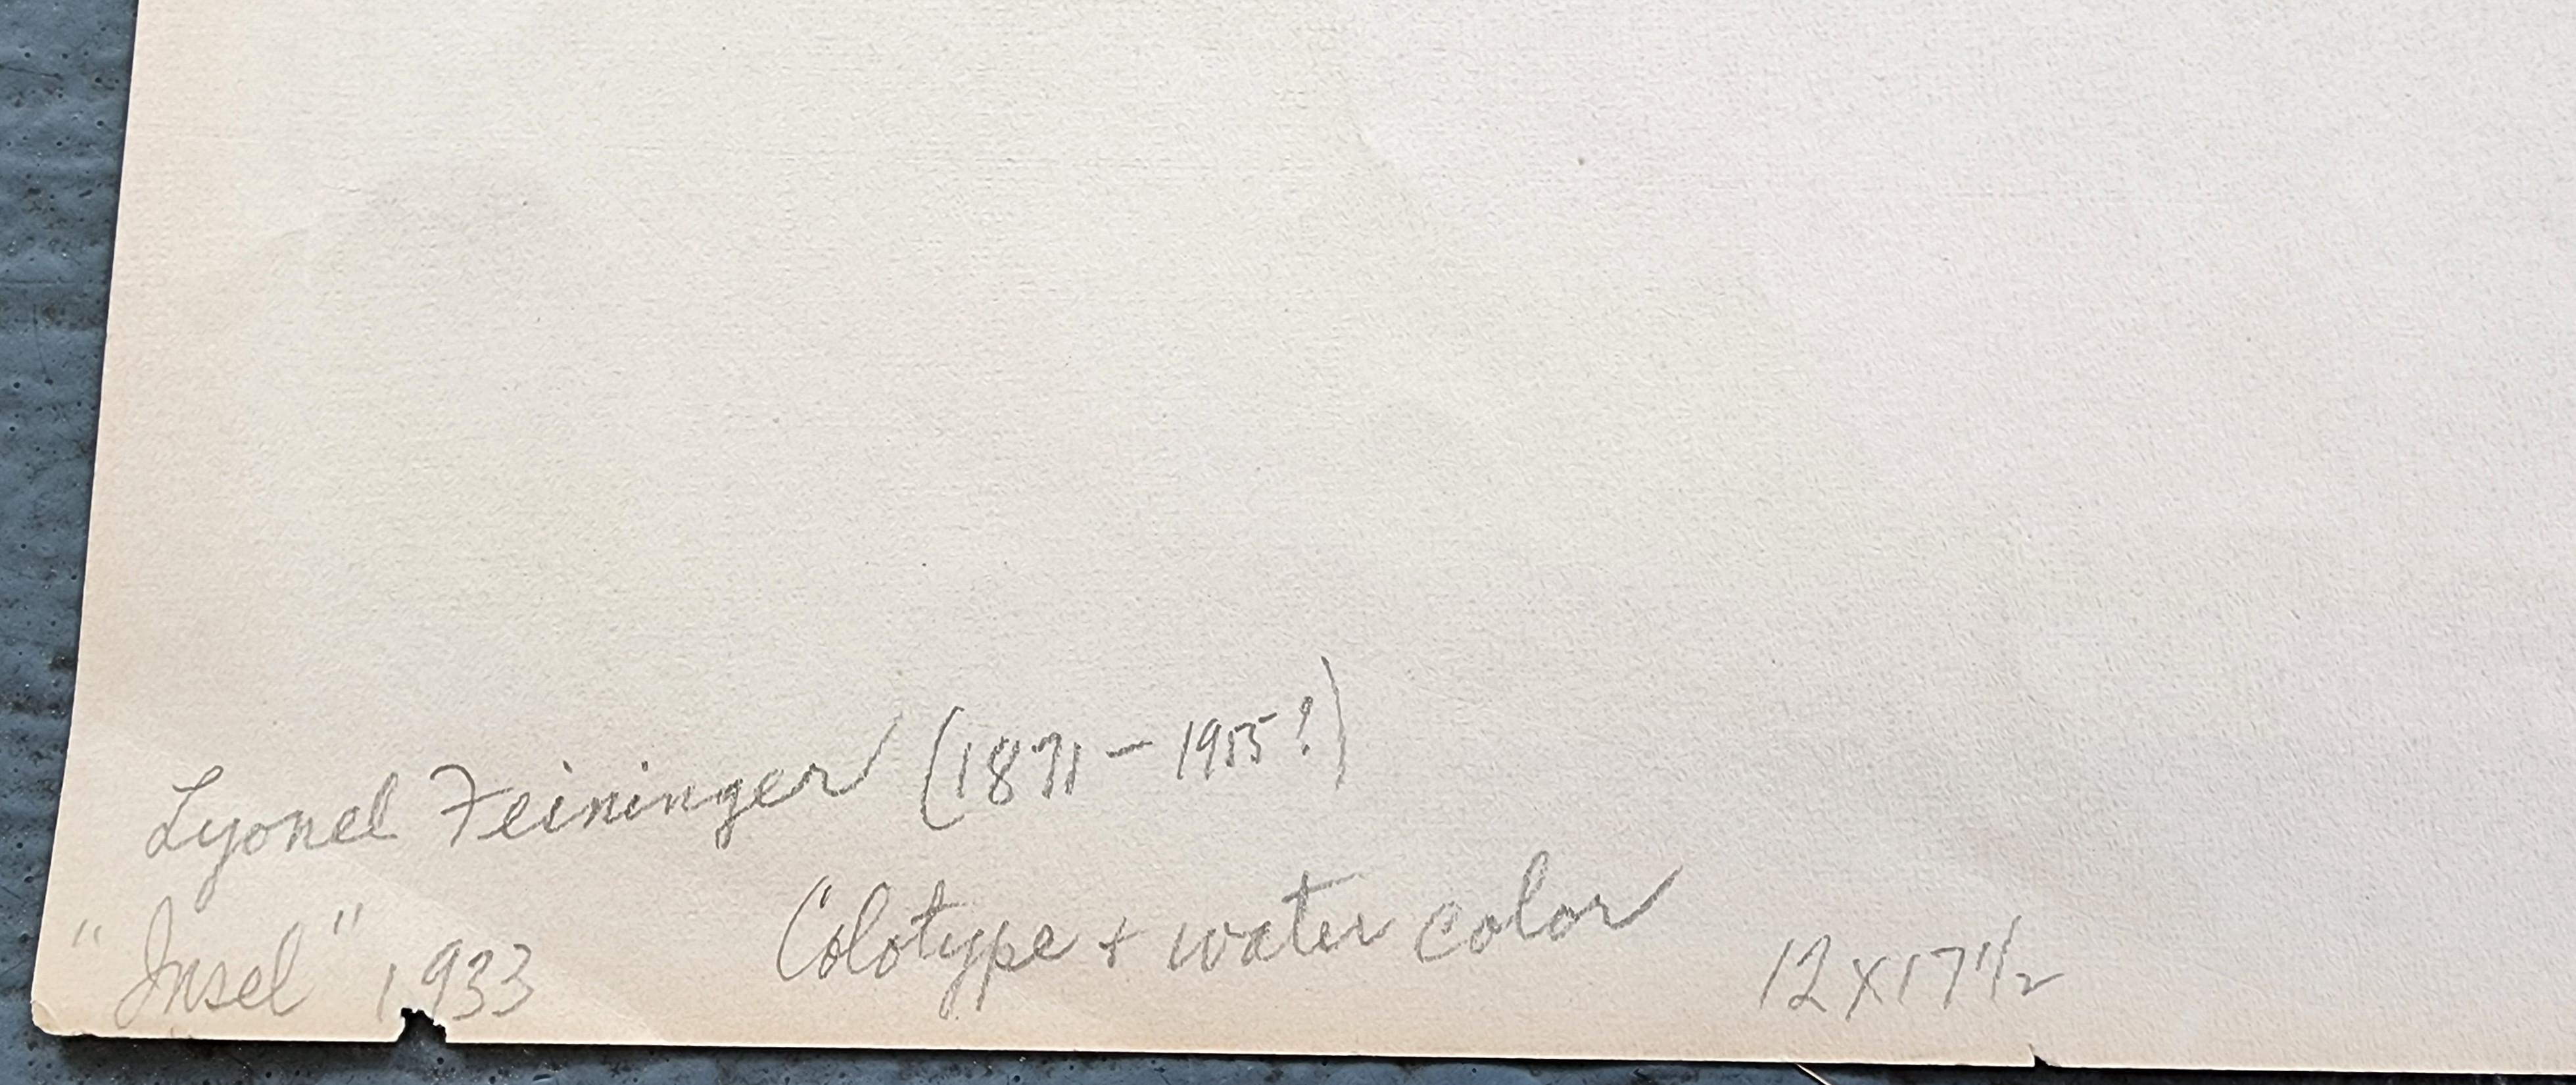 Lyonel Feininger (1871 - 1955?)
"Insel" 1933 Colotype + water color 12x17 1/2